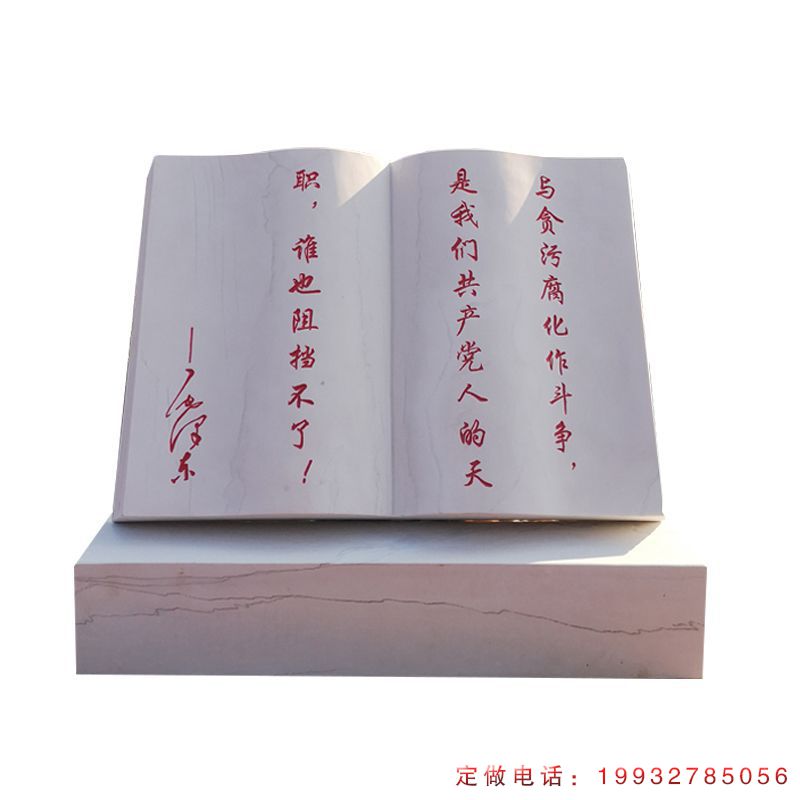 与贪污腐化作斗争，
是我们共产党人的天
职，谁也阻挡不了！
—毛泽东
定做电话：19932785056